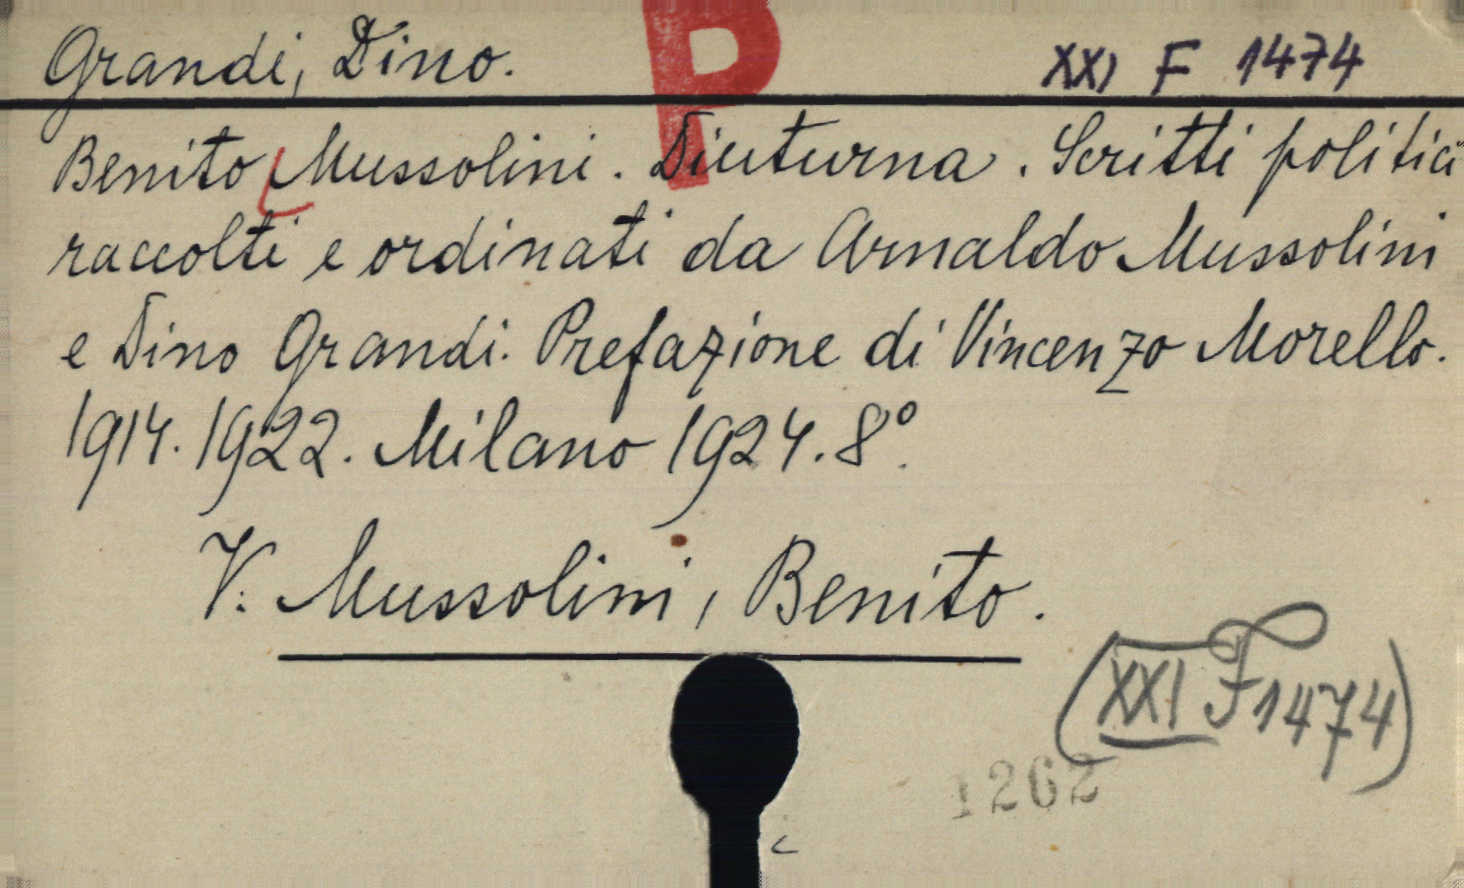 Grandi, Dino.
P
XXI F 1474
Benito Mussolini. Diuturna. Scritti politici
raccolti e ordinati da Arnaldo Mussolini
e Dino Grandi. Prefazione di Vincenzo Morello.
1914. 1922. Milano 1924. 8°.
V. Mussolini, Benito.
(XXI F 1474)
1262